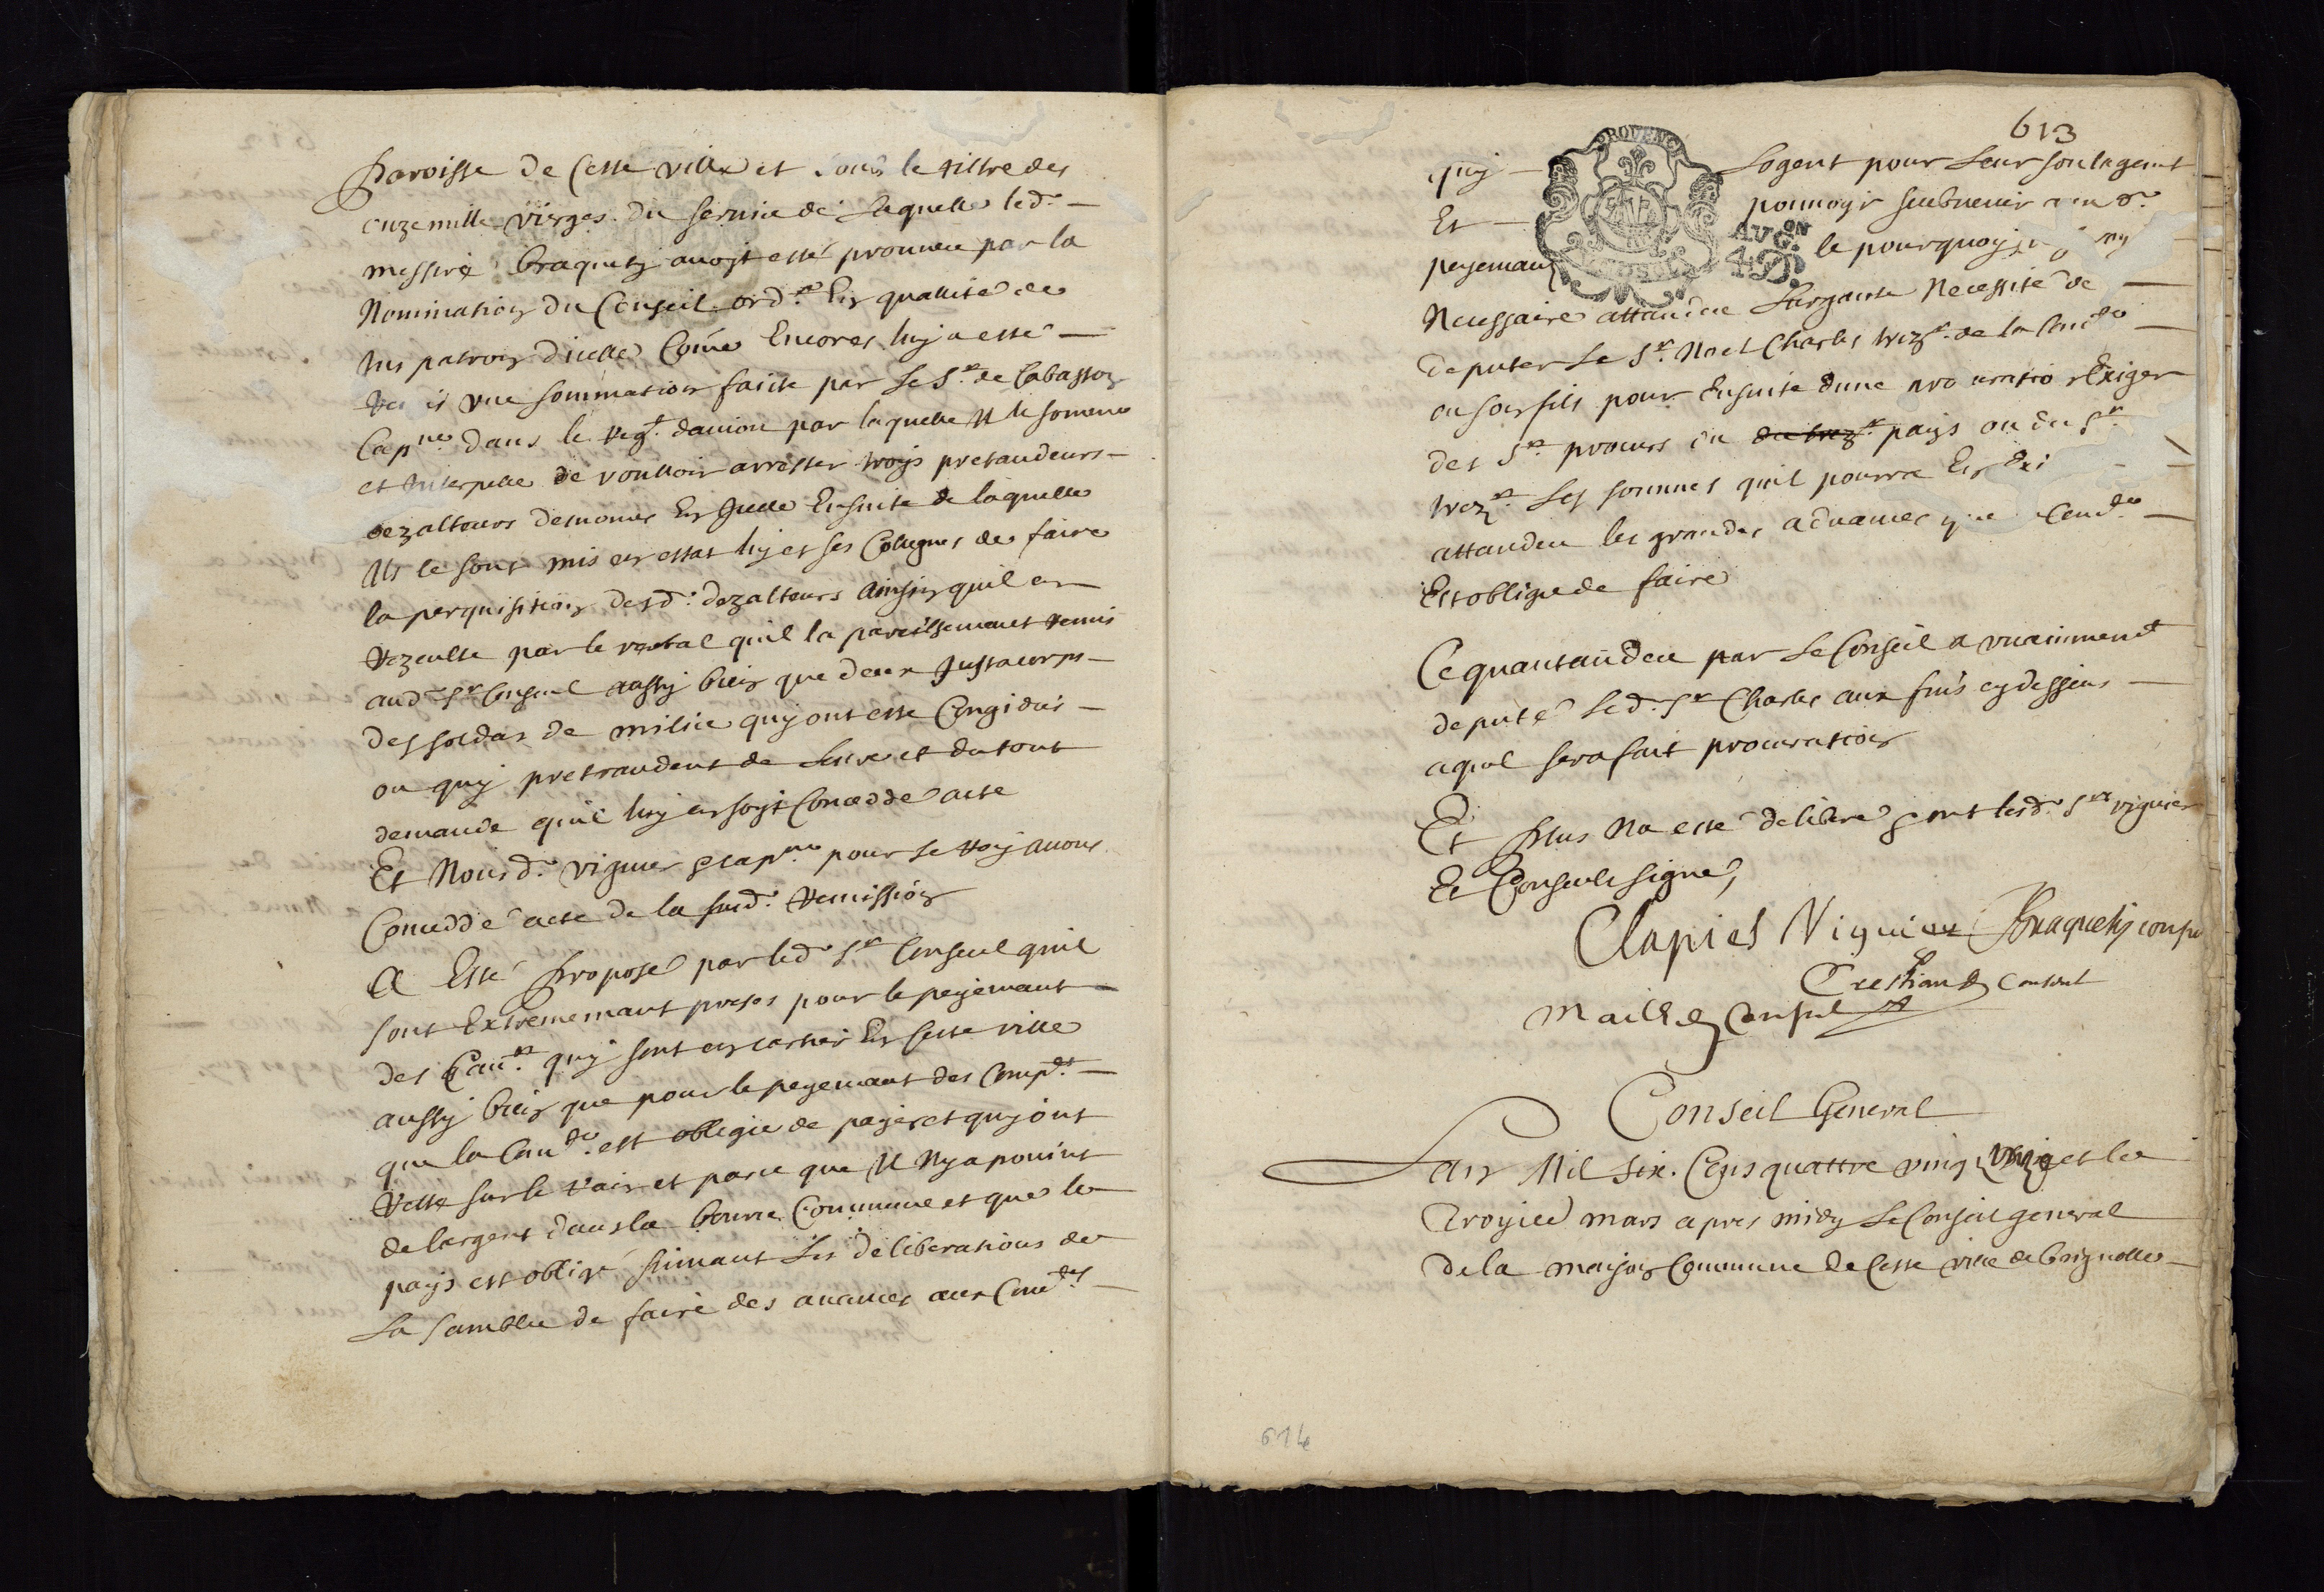 Paroisse de Cette ville et sous le tiltre des
onze mille vierges du service de laquelle led.
messire Braquety avoyt esté prouveu par la
Nomination du Conseil ord.re En quallité de
Jus patron dicelle Come Encores luy a esté
une sommation faicte par le Sr. de Cabasson
Cap.ne dans le regt. par laquelle Il le somme
et Interpelle de voulloir arrester troys pretandeus
dezalteurs desnomes En Icelle Ensuite de laquelle
Ils se sont mis en estat luy et ses Collegues de faire
la perquisition desd. dezalteurs Ainsin quil en
rezculte par le verbal quil la pareillemant remis
aud. Sr Consul aussy bien que deux Justacorps
des soldas de milice quy ont esté Congidiés
ou quy pretraudent de lestre et du tout
demande quil luy en soyt Concedde acte
Et Nous d. viguier et cap.ne pour le Roy avons
Concedde acte de la susd. Remission
A Esté Proposé par led. Sr Consul quil
sont Extrememant preses pour le peyemant
des quy sont en cartier En Cette ville
aussy bien que pour le peyemant des
que la Com.té est obligée de payer et quy ont
resté sur le et parce que Il Ny a pouint
de largent dans la bource Commune et que le
pays est obligé suivant Les deliberations de
La samblee de faire des avances aux Com.tés
613
PROVENCE
AVG.ON
4 D.
quy logent pour Leur soulagemt
Et pouvoyr subvenir
peyemant le pourquoy
Necessaire attandeu Lurgante Necessité de
deputer Le Sr. Noel Charles trezr. de la Com.té
ou son fils pour Ensuite dune Exiger
des Srs. procurs du pays ou du Sr.
trezr. Les sommes quil pourra
attandeu les grandes advances que Com.té
Est obligée de faire
Ce quantandeu par Le Conseil a unaimement
deputé Led. Sr Charles aux fins cy dessus
aquel sera fait procuration
Et Plus Na esté deliberé et ont lesd. Srs viguier
Et Consuls signé,
Clapiers Viguier Braquety consul
Crestian Consul
Maille Consul
Conseil General
Lan Mil Six Cens quattre vingt et le
Troyze mars apres midy Le Conseil general
de la maison Commune de Cette ville de Brignolles
614